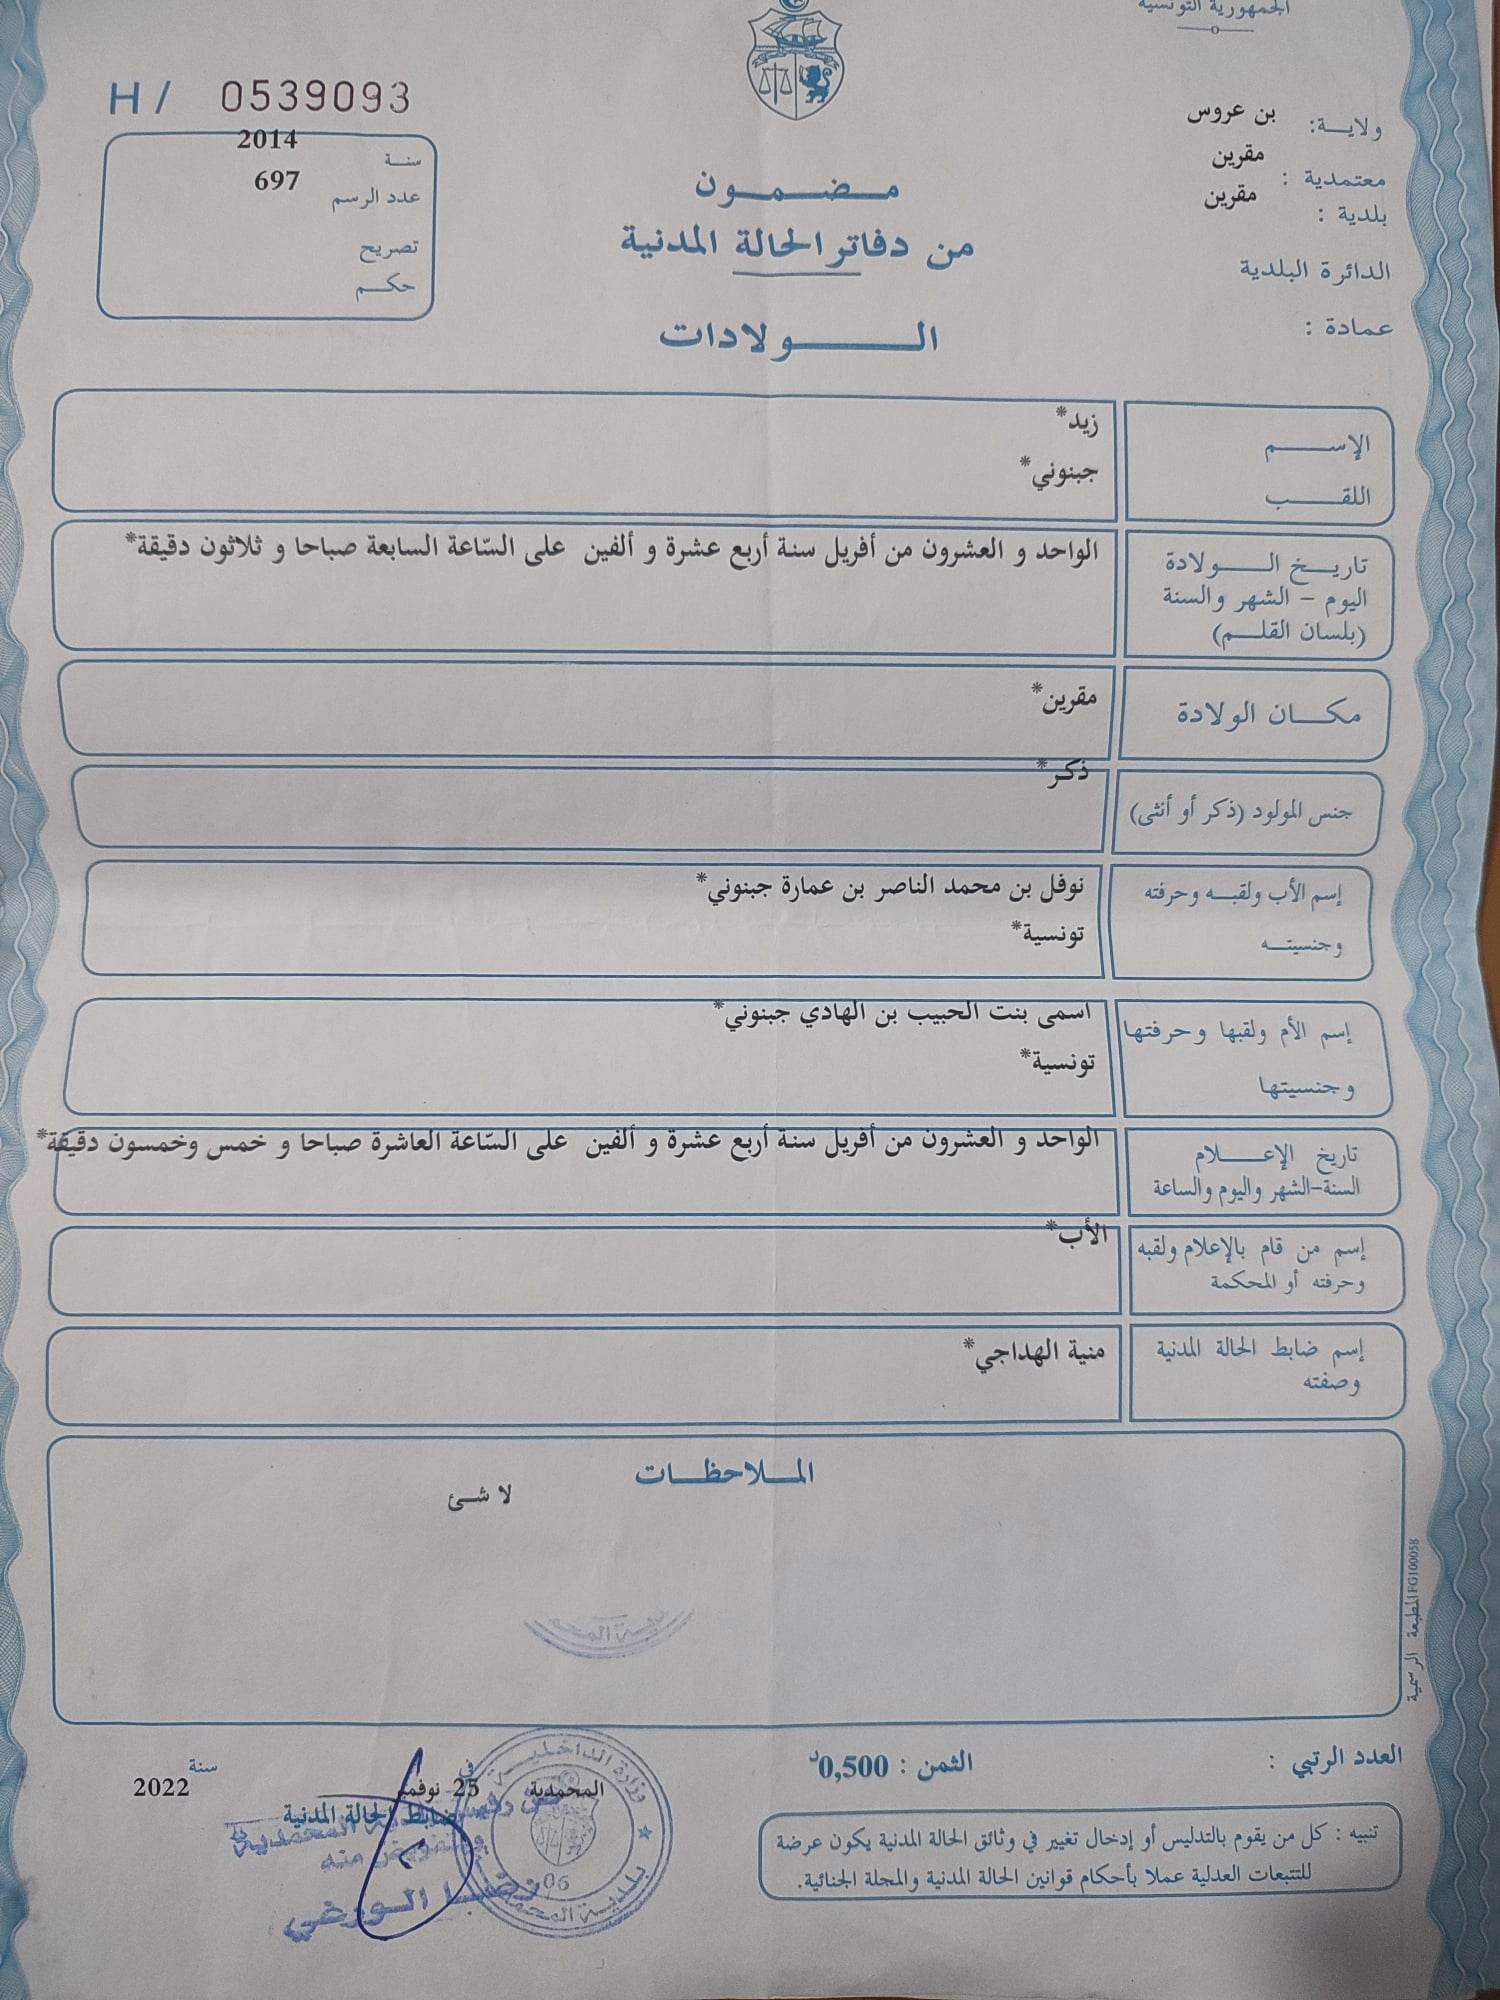 الجمهورية التونسية
H/ 0539093
ولايـــة: بن عروس
معتمدية : مقرين
بلدية : مقرين
الدائرة البلدية
عمادة :
سنـــة 2014
عدد الرسم 697
تصريح
حكـــم
مـــضـــمـــون
من دفاتر الحالة المدنية
الـــــولادات
الإســـــم زيد*
اللقـــــب جبنوني*
تاريـــخ الـــــولادة
اليوم – الشهر والسنة
(بلسان القلـــم)
الواحد و العشرون من أفريل سنة أربع عشرة و ألفين على السّاعة السابعة صباحا و ثلاثون دقيقة*
مكـــان الولادة مقرين*
جنس المولود (ذكر أو أنثى) ذكر*
إسم الأب ولقبـــه وحرفته
وجنسيتـــه
نوفل بن محمد الناصر بن عمارة جبنوني*
تونسية*
إسم الأم ولقبها وحرفتها
وجنسيتها
اسمى بنت الحبيب بن الهادي جبنوني*
تونسية*
تاريخ الإعـــــلام
السنة-الشهر واليوم والساعة
الواحد و العشرون من أفريل سنة أربع عشرة و ألفين على السّاعة العاشرة صباحا و خمس وخمسون دقيقة*
إسم من قام بالإعلام ولقبه
وحرفته أو المحكمة
الأب*
إسم ضابط الحالة المدنية
وصفته
منية الهداجي*
المـــلاحظـــات
لا شئ
المطبعة الرسمية FG100058
العدد الرتبي :
الثمن : 0,500د
المحمدية في 25 نوفمبر سنة 2022
ضابط الحالة المدنية
وزارة الداخلية
بلدية المحمدية
06
رضا الورغي
تنبيه : كل من يقوم بالتدليس أو إدخال تغيير في وثائق الحالة المدنية يكون عرضة
للتتبعات العدلية عملا بأحكام قوانين الحالة المدنية والمجلة الجنائية.